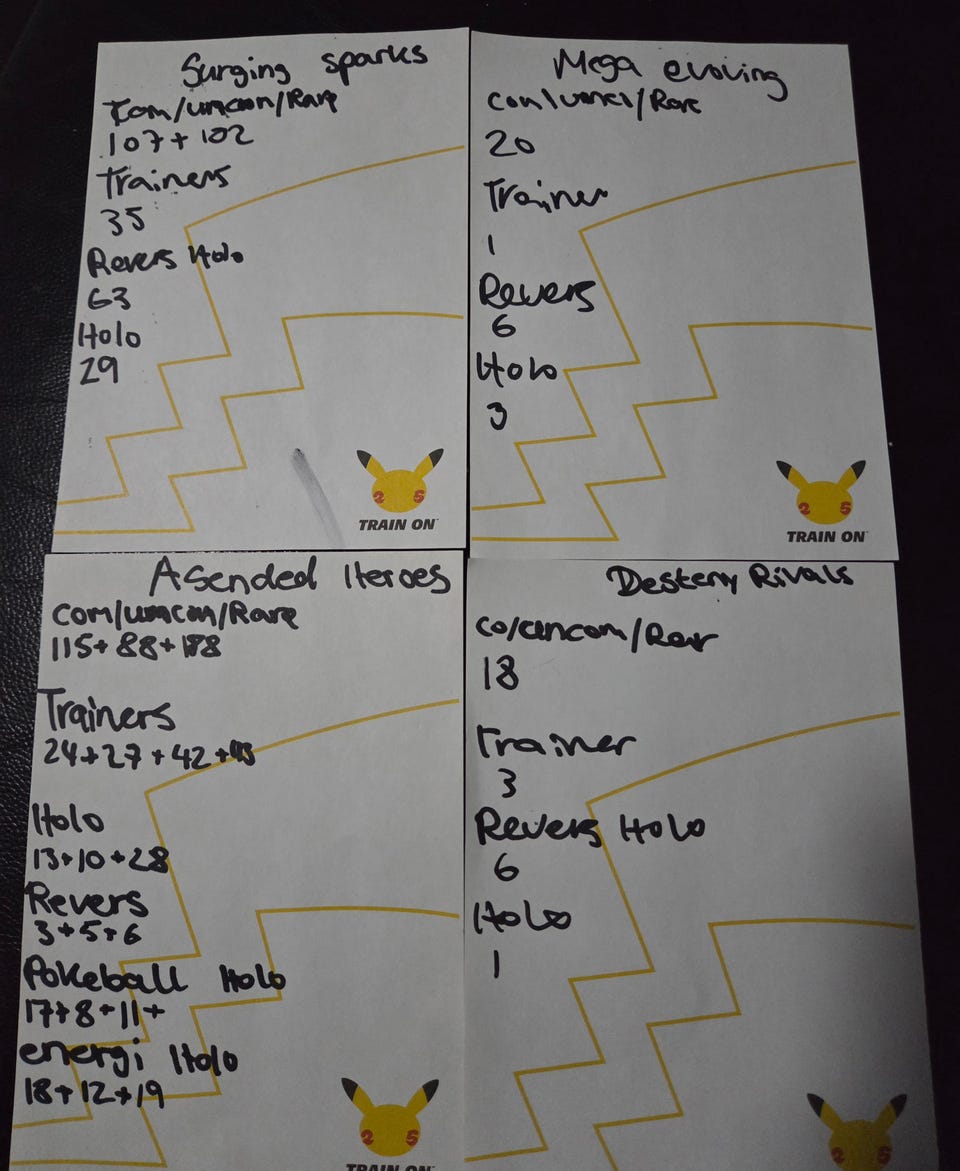 Surging sparks
Com/umcon/Rare
107+102
Trainers
35
Revers Holo
63
Holo
29
25
TRAIN ON
Mega evolving
20
Trainer
1
Revers
6
Holo
3
25
TRAIN ON
Asended Heroes
com/umcon/Rare
115+88+188
Trainers
24+27+42+43
Holo
13+10+28
Revers
3+5+6
Pokeball Holo
17+8+11+
energi Holo
18+12+19
25
TRAIN ON
Desteny Rivals
18
Trainer
3
Revers Holo
6
Holo
1
25